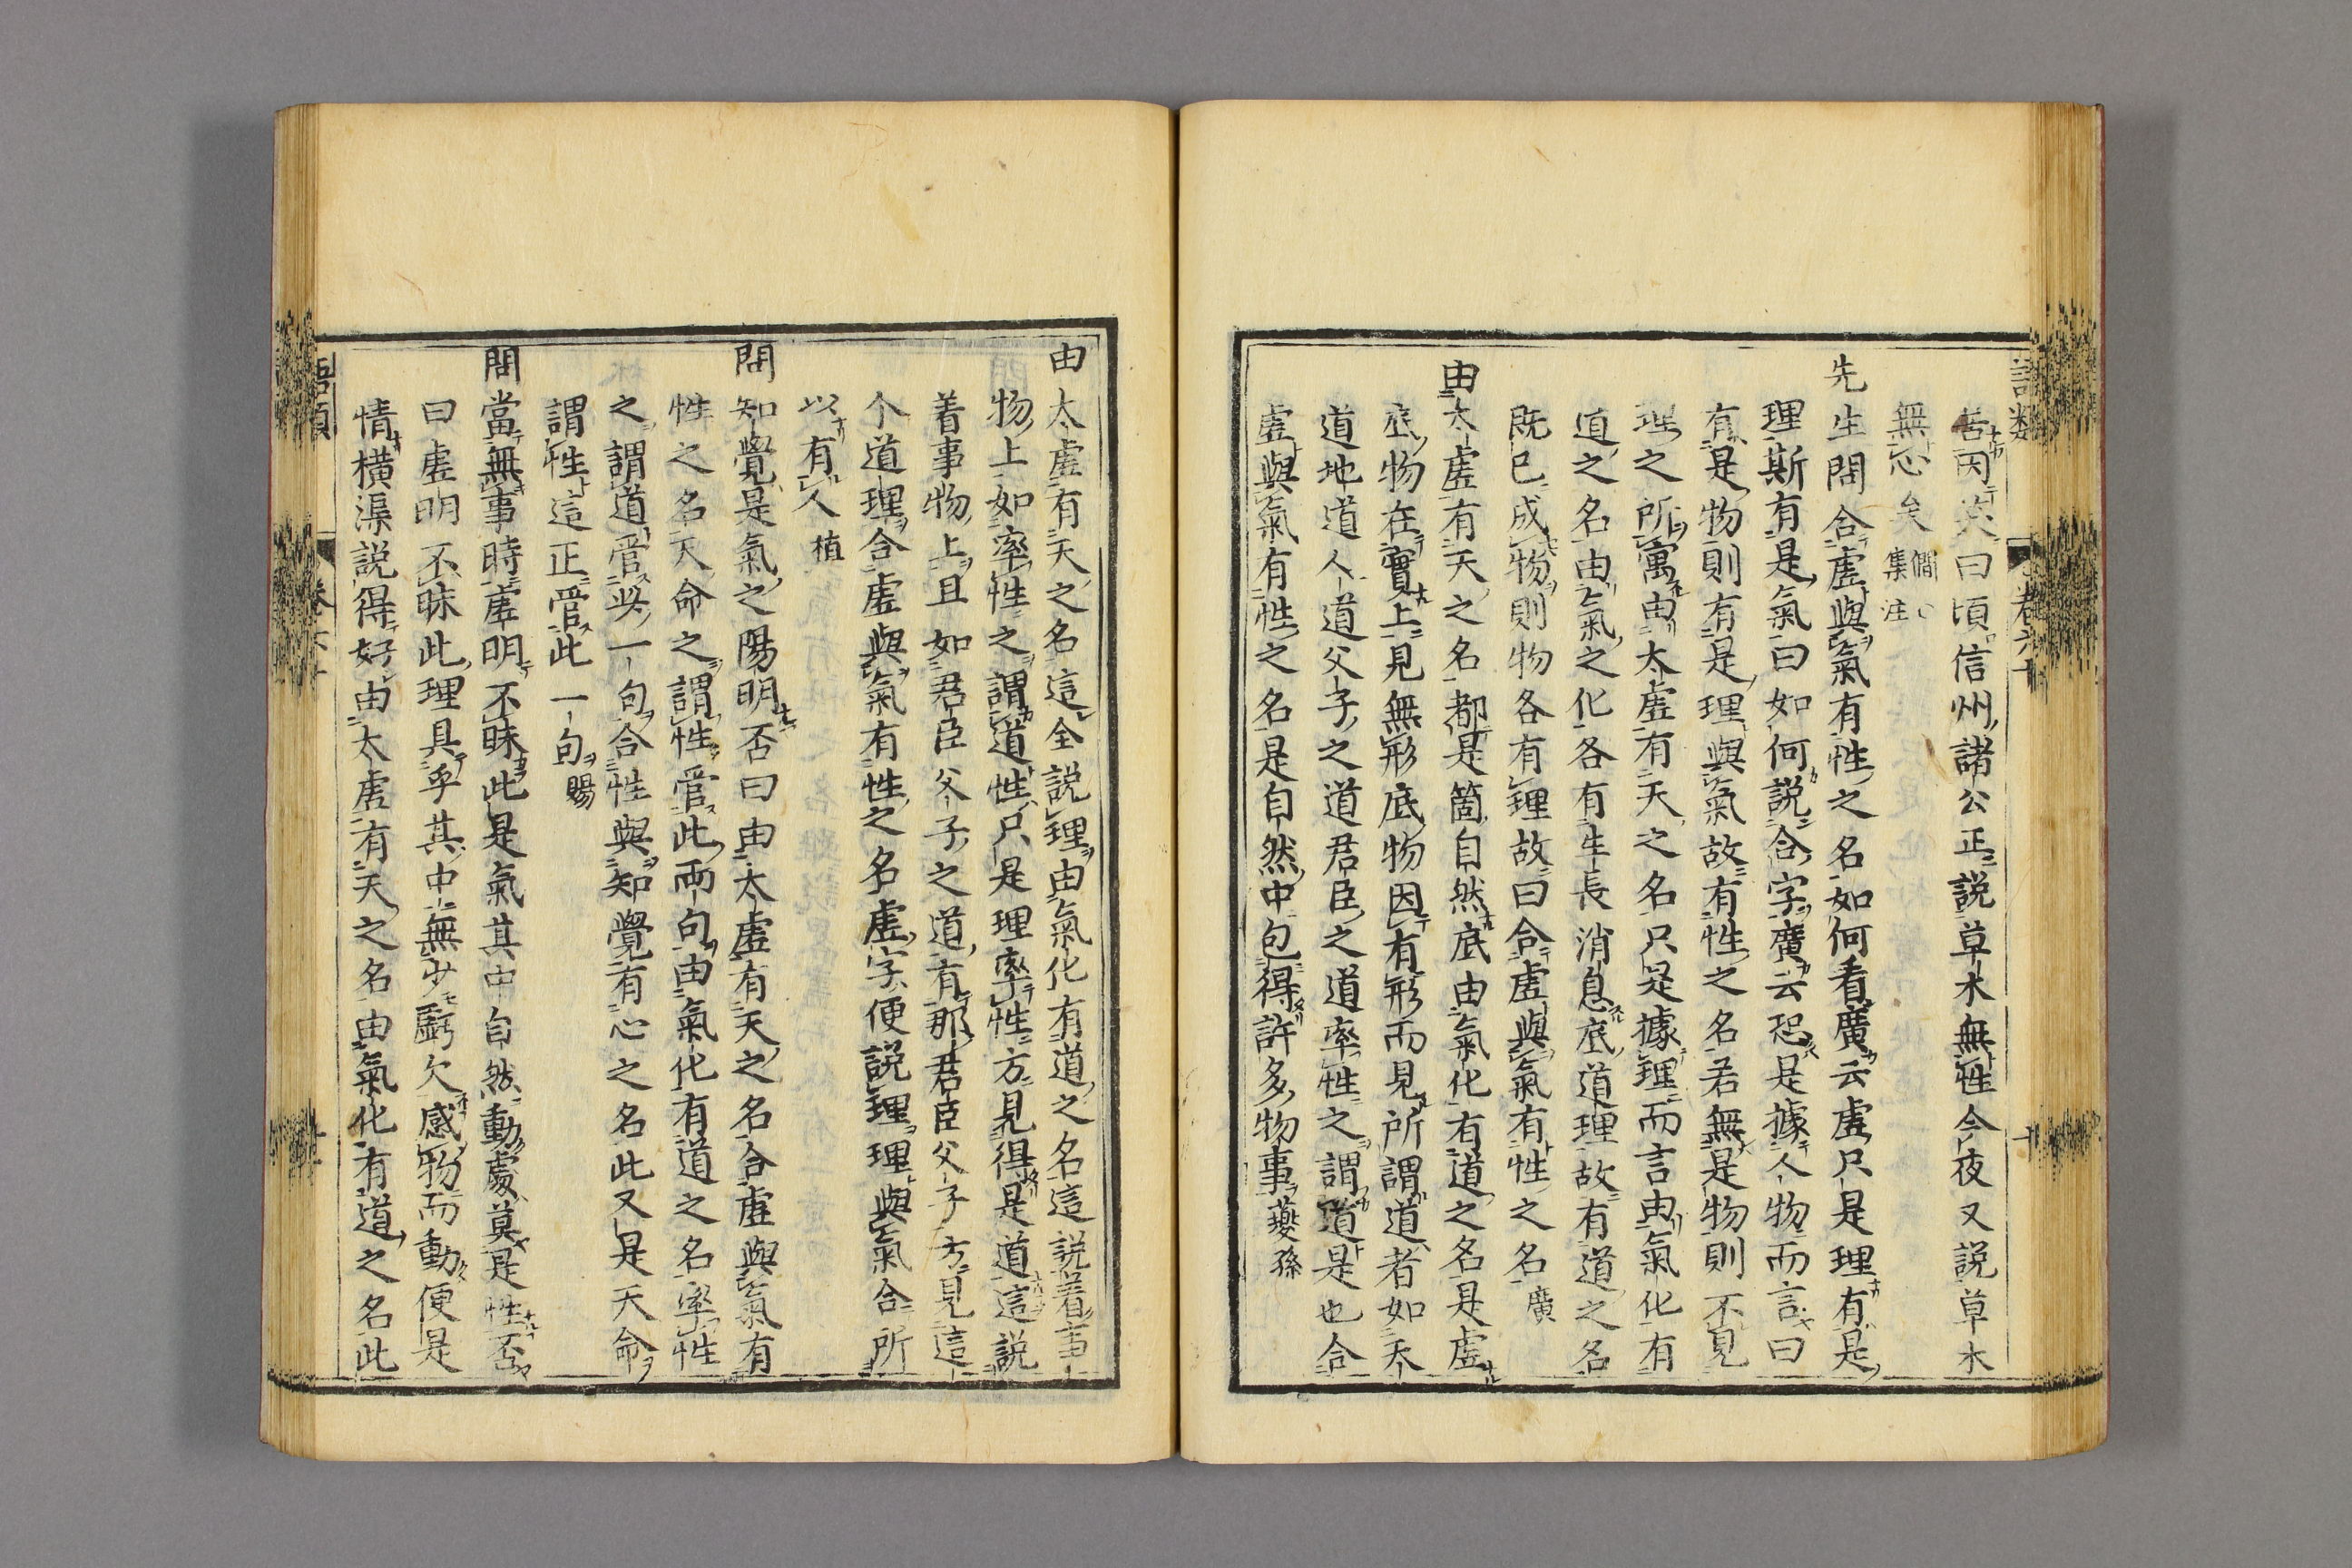 語類 卷六十 十
者因笑曰頃信州諸公正説草木無性今夜又説草木
無心矣 僩○集注
先生問合虛與氣有性之名如何看廣云虛只是理有是
理斯有是氣曰如何説合字廣云恐是據人物而言曰
有是物則有是理與氣故有性之名若無是物則不見
理之所寓由太虛有天之名只是據理而言由氣化有
道之名由氣之化各有生長消息底道理故有道之名
既已成物則物各有理故曰合虛與氣有性之名 廣
由太虛有天之名都是箇自然底由氣化有道之名是虛
底物在實上見無形底物因有形而見所謂道者如天
道地道人道父子之道君臣之道率性之謂道是也合
虛與氣有性之名是自然中包得許多物事 夔孫
由太虛有天之名這全説理由氣化有道之名這説着事
物上如率性之謂道性只是理率性方見得是道這説
着事物上且如君臣父子之道有那君臣父子方見這
个道理合虛與氣有性之名虛字便説理理與氣合所
以有人 植
問知覺是氣之陽明否曰由太虛有天之名合虛與氣有
性之名天命之謂性管此兩句由氣化有道之名率性
之謂道管此一句合性與知覺有心之名此又是天命
謂性這正管此一句 賜
問當無事時虛明不昧此是氣其中自然動處莫是性否
曰虛明不昧此理具乎其中無少虧欠感物而動便是
情橫渠説得好由太虛有天之名由氣化有道之名此
語類 卷六十